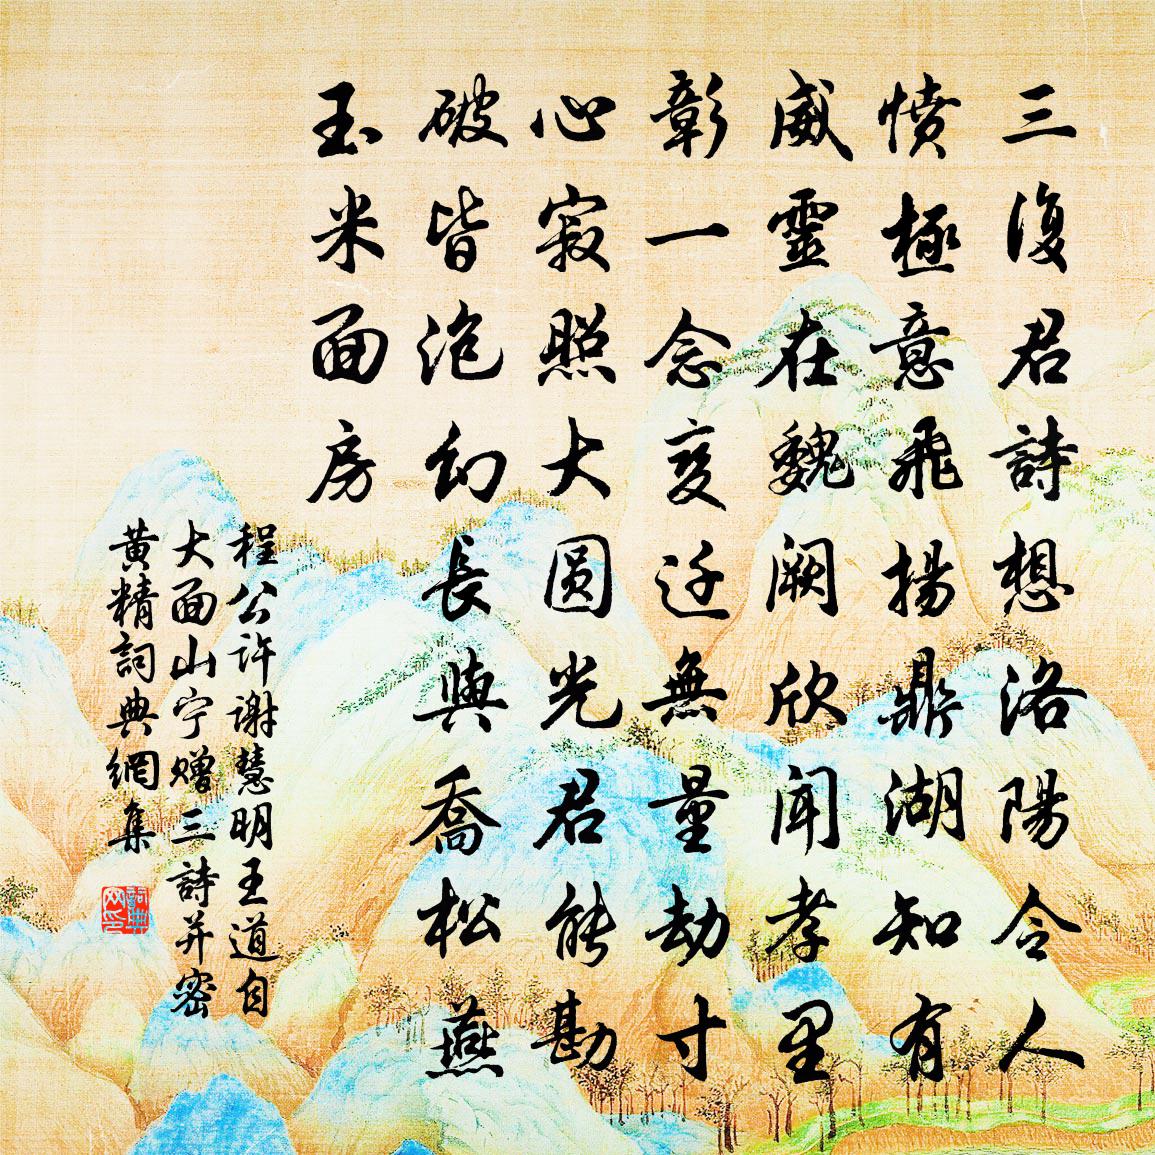 三復君詩想洛陽令人
憤極意飛揚鼎湖知有
威靈在魏闕欣聞孝里
彰一念變迁無量劫寸
心寂照大圓光君能勘
破皆泡幻長與喬松燕
玉米面房
程公許謝慧明王道自
大面山宁赠三詩并密
黃精詞典網集